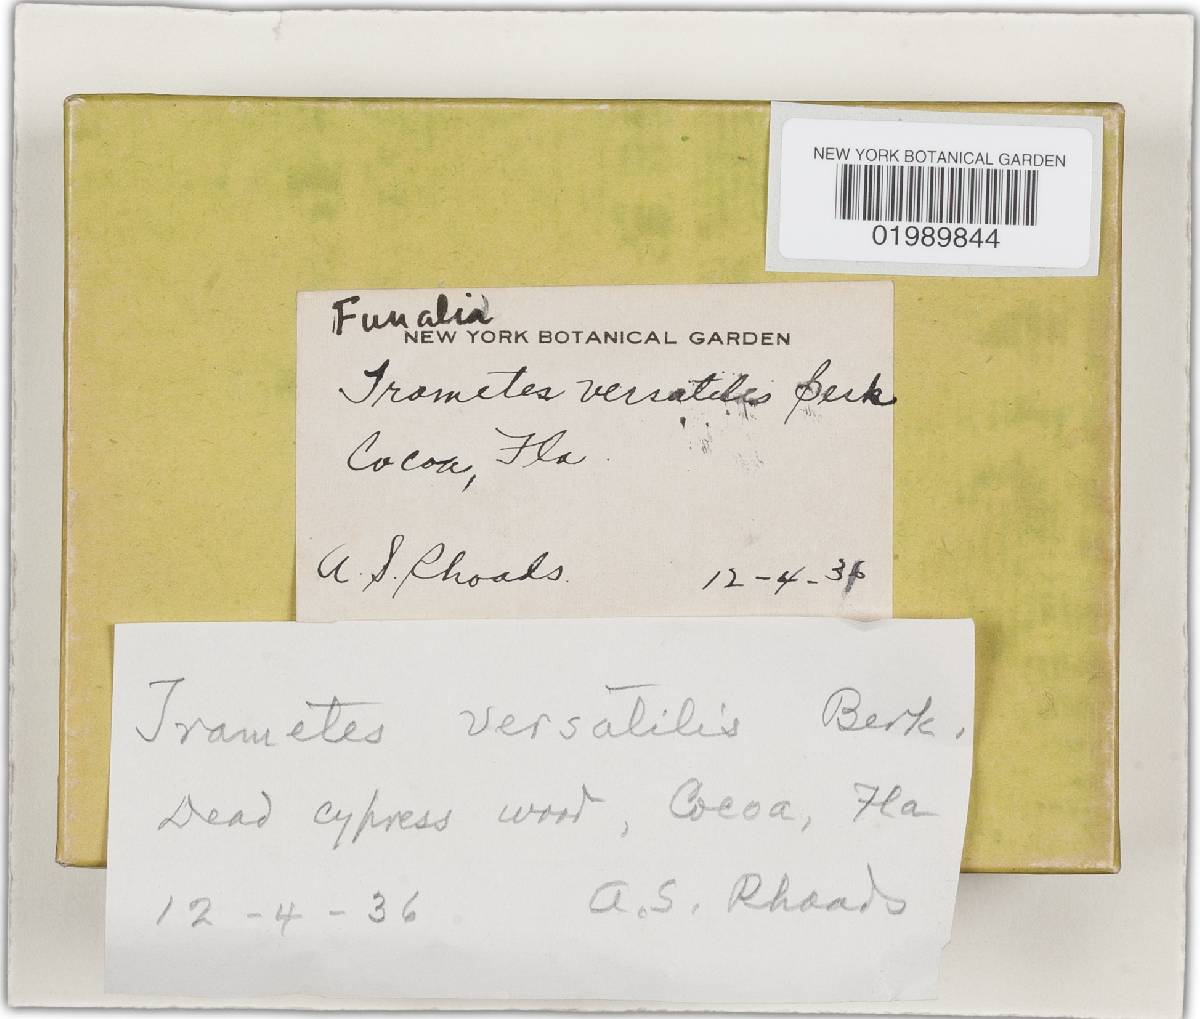 NEW YORK BOTANICAL GARDEN
01989844
Funalia
NEW YORK BOTANICAL GARDEN
Trametes versatilis Berk
Cocoa, Fla.
A. S. Rhoads. 12-4-36
Trametes versatilis Berk.
Dead cypress wood, Cocoa, Fla
12-4-36 A.S. Rhoads